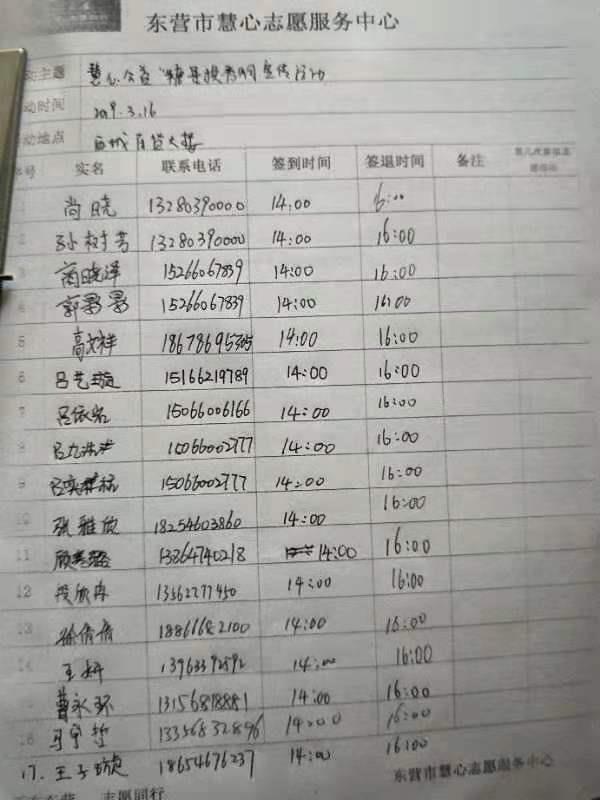 东营市慧心志愿服务中心
主题 慧心公益 宣传活动
动时间 2019.3.16
动地点 西城百货大楼
序号 实名 联系电话 签到时间 签退时间 备注
尚晓 13280390000 14:00 16:00
2 孙树芳 13280390000 14:00 16:00
3 商晓泽 15266067839 14:00 16:00
4 郭 15266067839 14:00 16:00
5 高文祥 18678695305 14:00 16:00
6 吕艺璇 15166219789 14:00 16:00
7 吕依宸 15066006166 14:00 16:00
8 吕 15066002777 14:00 16:00
9 吕奕 15066002777 14:00 16:00
10 张雅欣 18254603860 14:00 16:00
11 顾 13864740218 14:00 16:00
12 段欣冉 13562777450 14:00 16:00
13 徐倩倩 18866682100 14:00 16:00
14 王妍 13963392592 14:00 16:00
曹永环 13156818881 14:00 16:00
16 马宇哲 13356832896 14:00 16:00
17. 王子璇 18654676237 14:00 16:00
东营市慧心志愿服务中心
志愿同行